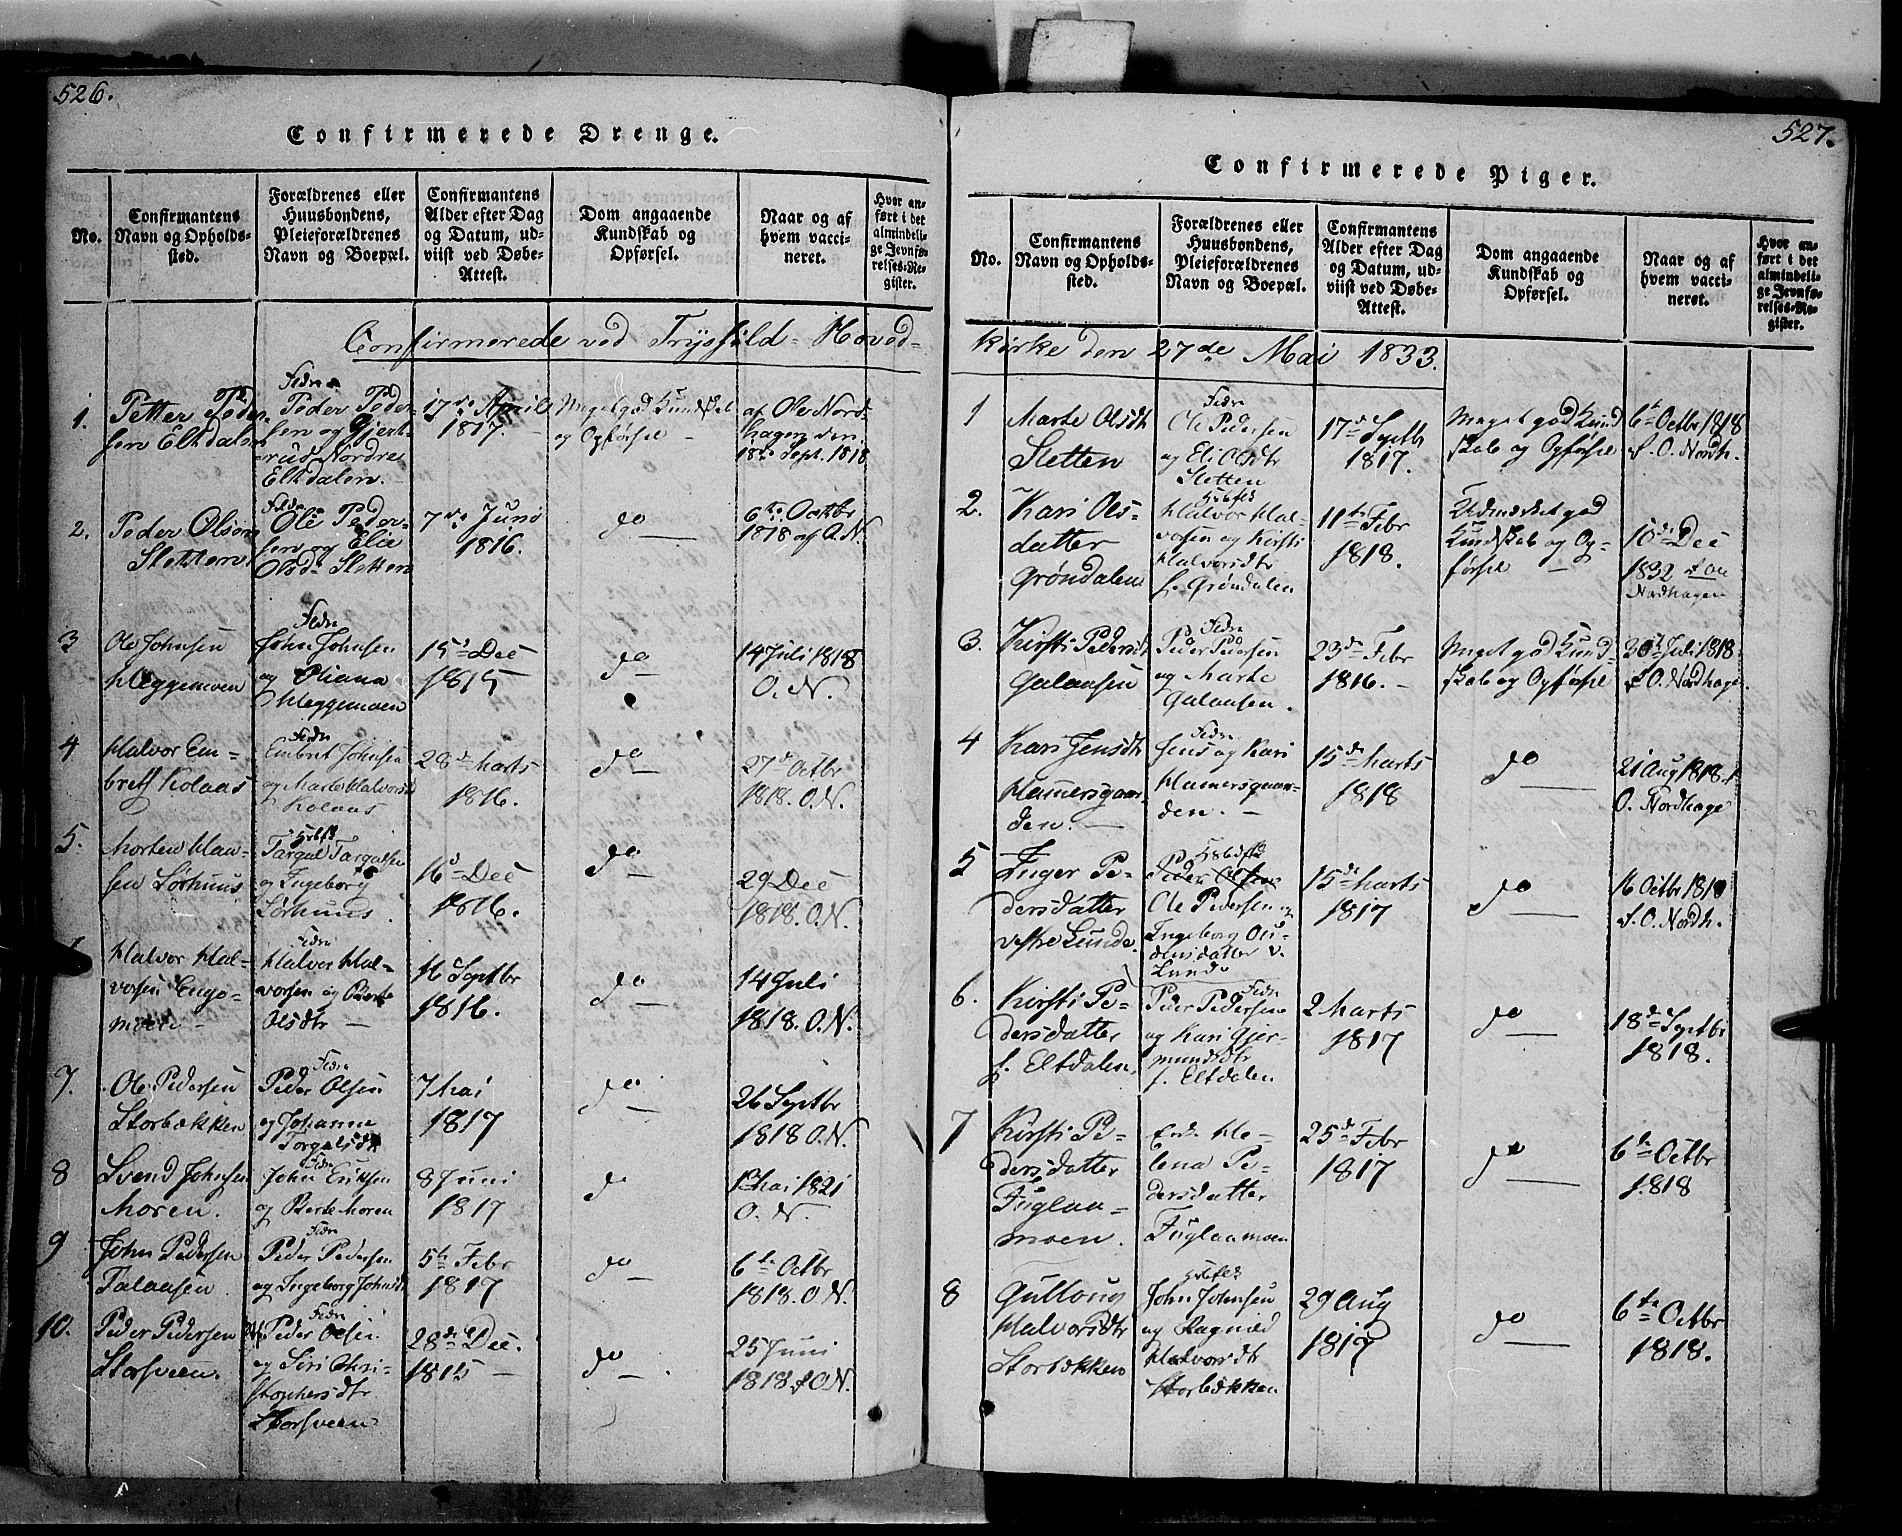 526.
Confirmerede Drenge.
No.
Confirmantens Navn og Opholdssted.
Forældrenes eller Huusbondens, Pleieforældrenes Navn og Boepæl.
Confirmantens Alder efter Dag og Datum, udviist ved Døbe-Attest.
Dom angaaende Kundskab og Opførsel.
Naar og af hvem vaccineret.
Hvor anført i det almindelige Jevnførelses-Register.
Confirmerede ved Trysfild-Hoved-
1.
Petter Peder-
sen Elkdalen
Fedre
Peder Peder-
sen og Gjert-
rud Nordre
Elkdalen.
17de April
1817.
Meget god Kundskab
og Opførsel
af Ole Nord-
hagen den
18de Sept. 1818
2.
Peder Olsen
Sletten
Ole Peder-
sen og Elie
Olsdr Sletten
7de Juni
1816.
do
6te Octbr
1818 af O.N.
3
Ole Johnsen
Heggemoen
Fedre
John Johnsen
og Eliana
Heggemoen
15d Dec
1815
do
14 Juli 1818
O. N.
4
Halvor Em-
bretf Kolaas
Fedre
Embret Johnsen
og Marte Halvorsd
Kolaas
28d Marts
1816.
do
27d Octbr
1818. O.N.
5.
Morten Han-
sen Sørhuus
Targal Targalsen
og Ingeborg
Sørhuus.
16d Dec
1816.
do
29 Dec
1818. O.N.
Halvor Hal-
vorsen Enge-
moen
Fedre
Halvor Hal-
vorsen og Berte
Olsdtr
16 Septbr
1816.
do
14 Juli
1818. O.N.
7.
Ole Pedersen
Storbækken
Fedre
Peder Olsen
og Johanne
Torgalsdtr
7 Mai
1817
do
26 Septbr
1818 O.N.
8
Svend Johnsen
Moren.
Fedre
John Eriksen
og Berte Moren
8 Juni
1817
do
1 Mai 1821
O. N.
9
John Pedersen
Galaasen
Fedre
Peder Pedersen
og Ingeborg Johnsdr
5te Febr
1817
do
6te Octbr
1818. O.N.
10.
Peder Pedersen
Storsveen.
Fedre
Peder Olsen
og Siri Chri-
stophersdtr
Storsveen
28de Dec.
1815
do
25 Juni
1818 f O.N.
527.
Confirmerede Piger.
No.
Confirmantens Navn og Opholdssted.
Forældrenes eller Huusbondens, Pleieforældrenes Navn og Boepæl.
Confirmantens Alder efter Dag og Datum, udviist ved Døbe-Attest.
Dom angaaende Kundskab og Opførsel.
Naar og af hvem vaccineret.
Hvor anført i det almindelige Jevnførelses-Register.
Kirke den 27de Mai 1833.
1
Marte Olsdtr
Sletten
Fedre
Ole Pedersen
og Eli Olsdtr
Sletten
17de Septbr
1817.
Meget god Kund
skab og Opførsel
6te Octbr 1818
f. O. Nordh.
2.
Kari Ols-
datter
Grøndalen
Halvor Hal-
vorsen og Kirsti
Halvorsdtr
f. Grøndalen
11te Febr
1818.
Udmærket god
Kundskab og Op-
førsel
10de Dec
1832 f Ole
Nordhagen
3.
Kirsti Pedersdt
Galaasen
Fedre
Peder Pedersen
og Marte
Galaasen.
23de Febr
1816.
Meget god Kund-
skab og Opførsel
30te Juli 1818
f O. Nordhage.
4
Kari Jensdtr
Hamersgaar-
den.
Fedre
Jens og Kari
Hamersgaar-
den.
15de Marts
1818
do
21 Aug 1818. f
O. Nordhage
5
Inger Pe-
dersdatter
vestre Lunde.
Peder Olsen
Ole Pedersen og
Ingeborg Ou-
densdatter v.
Lunde
15de Marts
1817
do
16 Octbr 1818
f. O. Nordh.
6.
Kirsti Pe-
dersdatter
f. Eltdalen.
Fedre
Peder Pedersen
og Kari Gjer-
mundsdtr
f. Eltdalen
2 Marts
1817
do
18de Septbr
1818.
7
Kirsti Pe-
dersdatter
Fuglaa-
moen.
Enke He-
lena Pe-
dersdatter
Fuglaamoen
25de Febr
1817
do
6te Octbr
1818
8
Gullaug
Halvorsdtr
Storbækken
John Johnsen
og Ragnild
Halvorsdtr
Storbækken
29 Aug
1817
do
6te Octbr
1818.